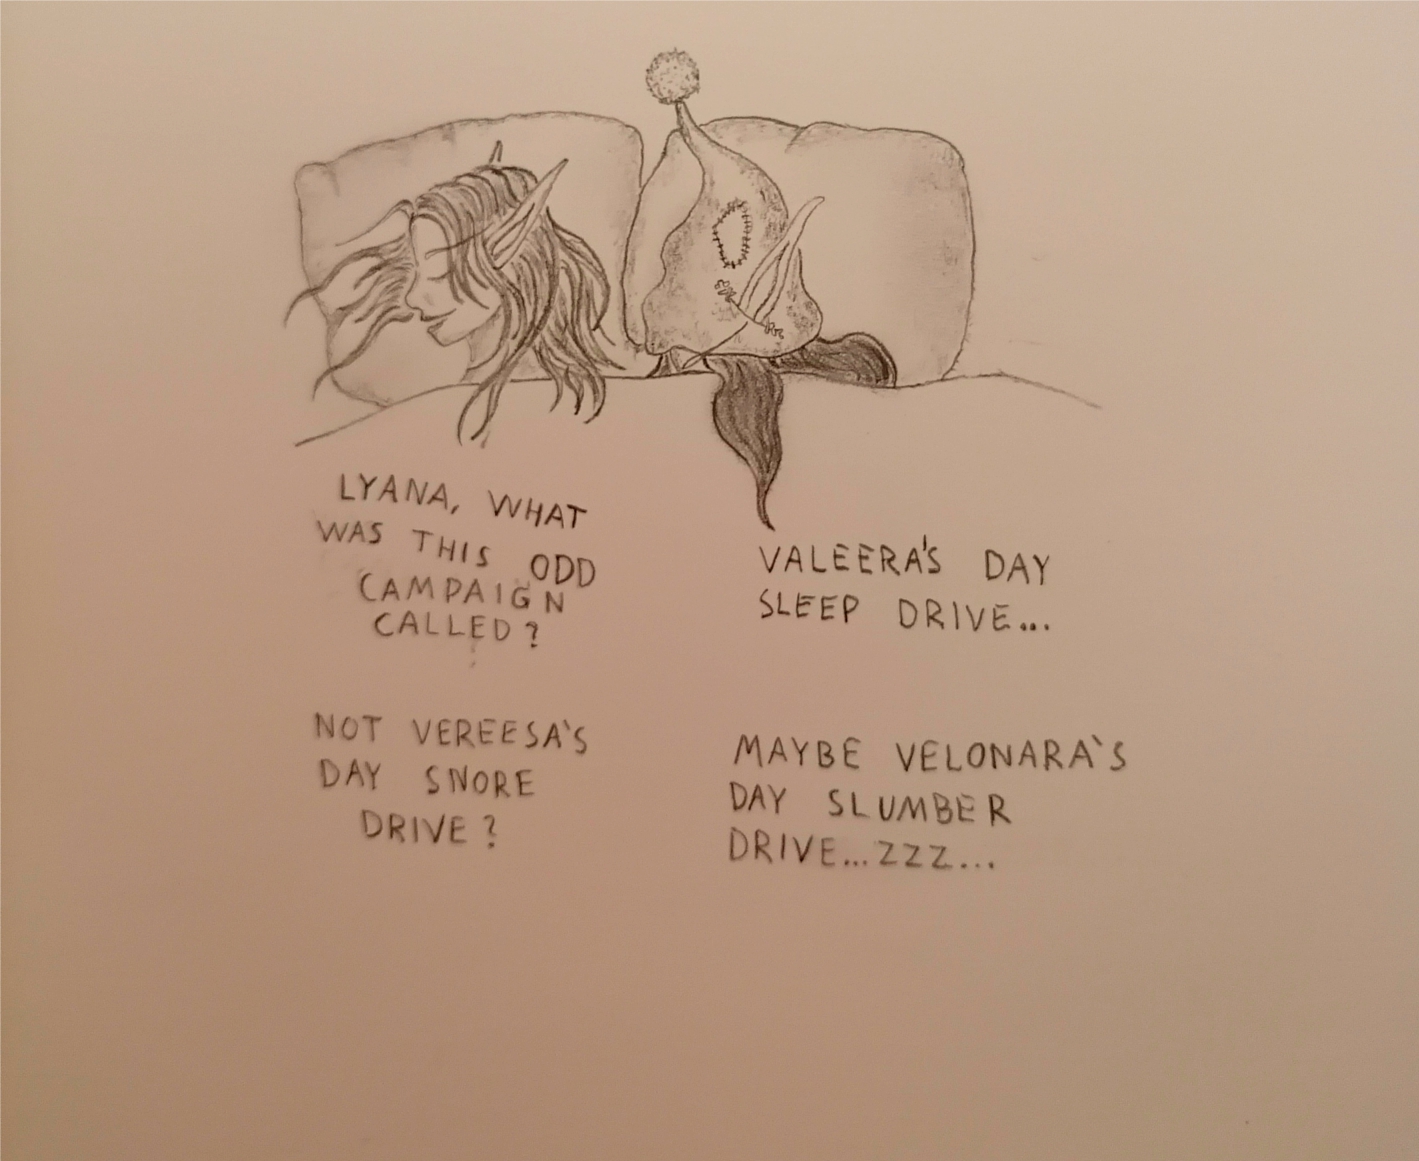 LYANA, WHAT
WAS THIS ODD
CAMPAIGN
CALLED?
VALEERA'S DAY
SLEEP DRIVE...
NOT VEREESA`S
DAY SNORE
DRIVE?
MAYBE VELONARA`S
DAY SLUMBER
DRIVE...ZZZ...